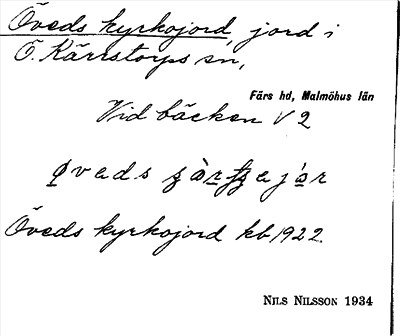 Öveds kyrkojord, jord i
Ö. Kärrstorps sn,
Färs hd, Malmöhus län
Vid bäcken V 2
Öveds kyrkojord kb 1922.
NILS NILSSON 1934